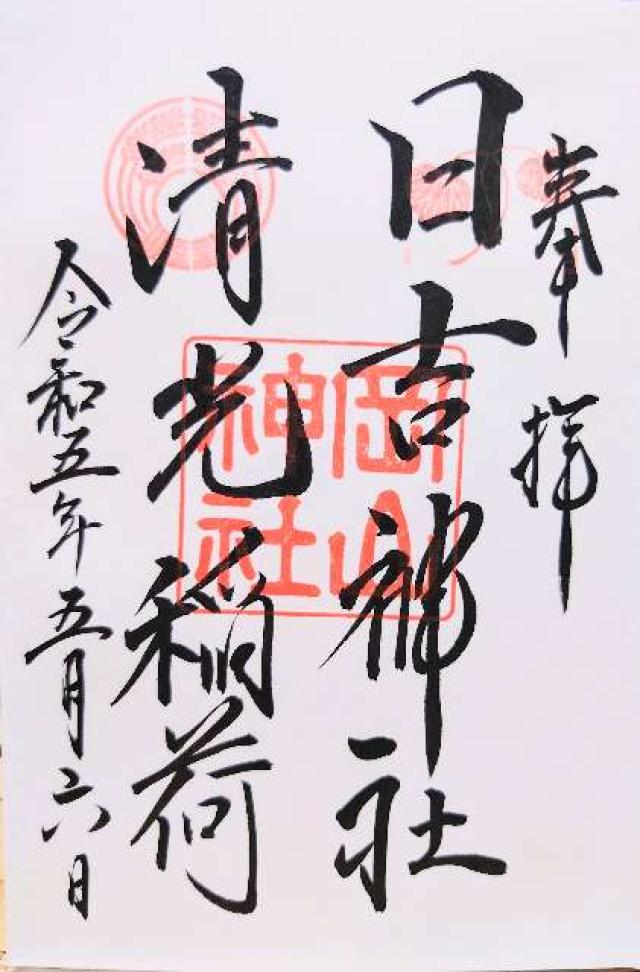 奉拝
日古神社
清光稲荷
令和五年五月六日
岡山
神社